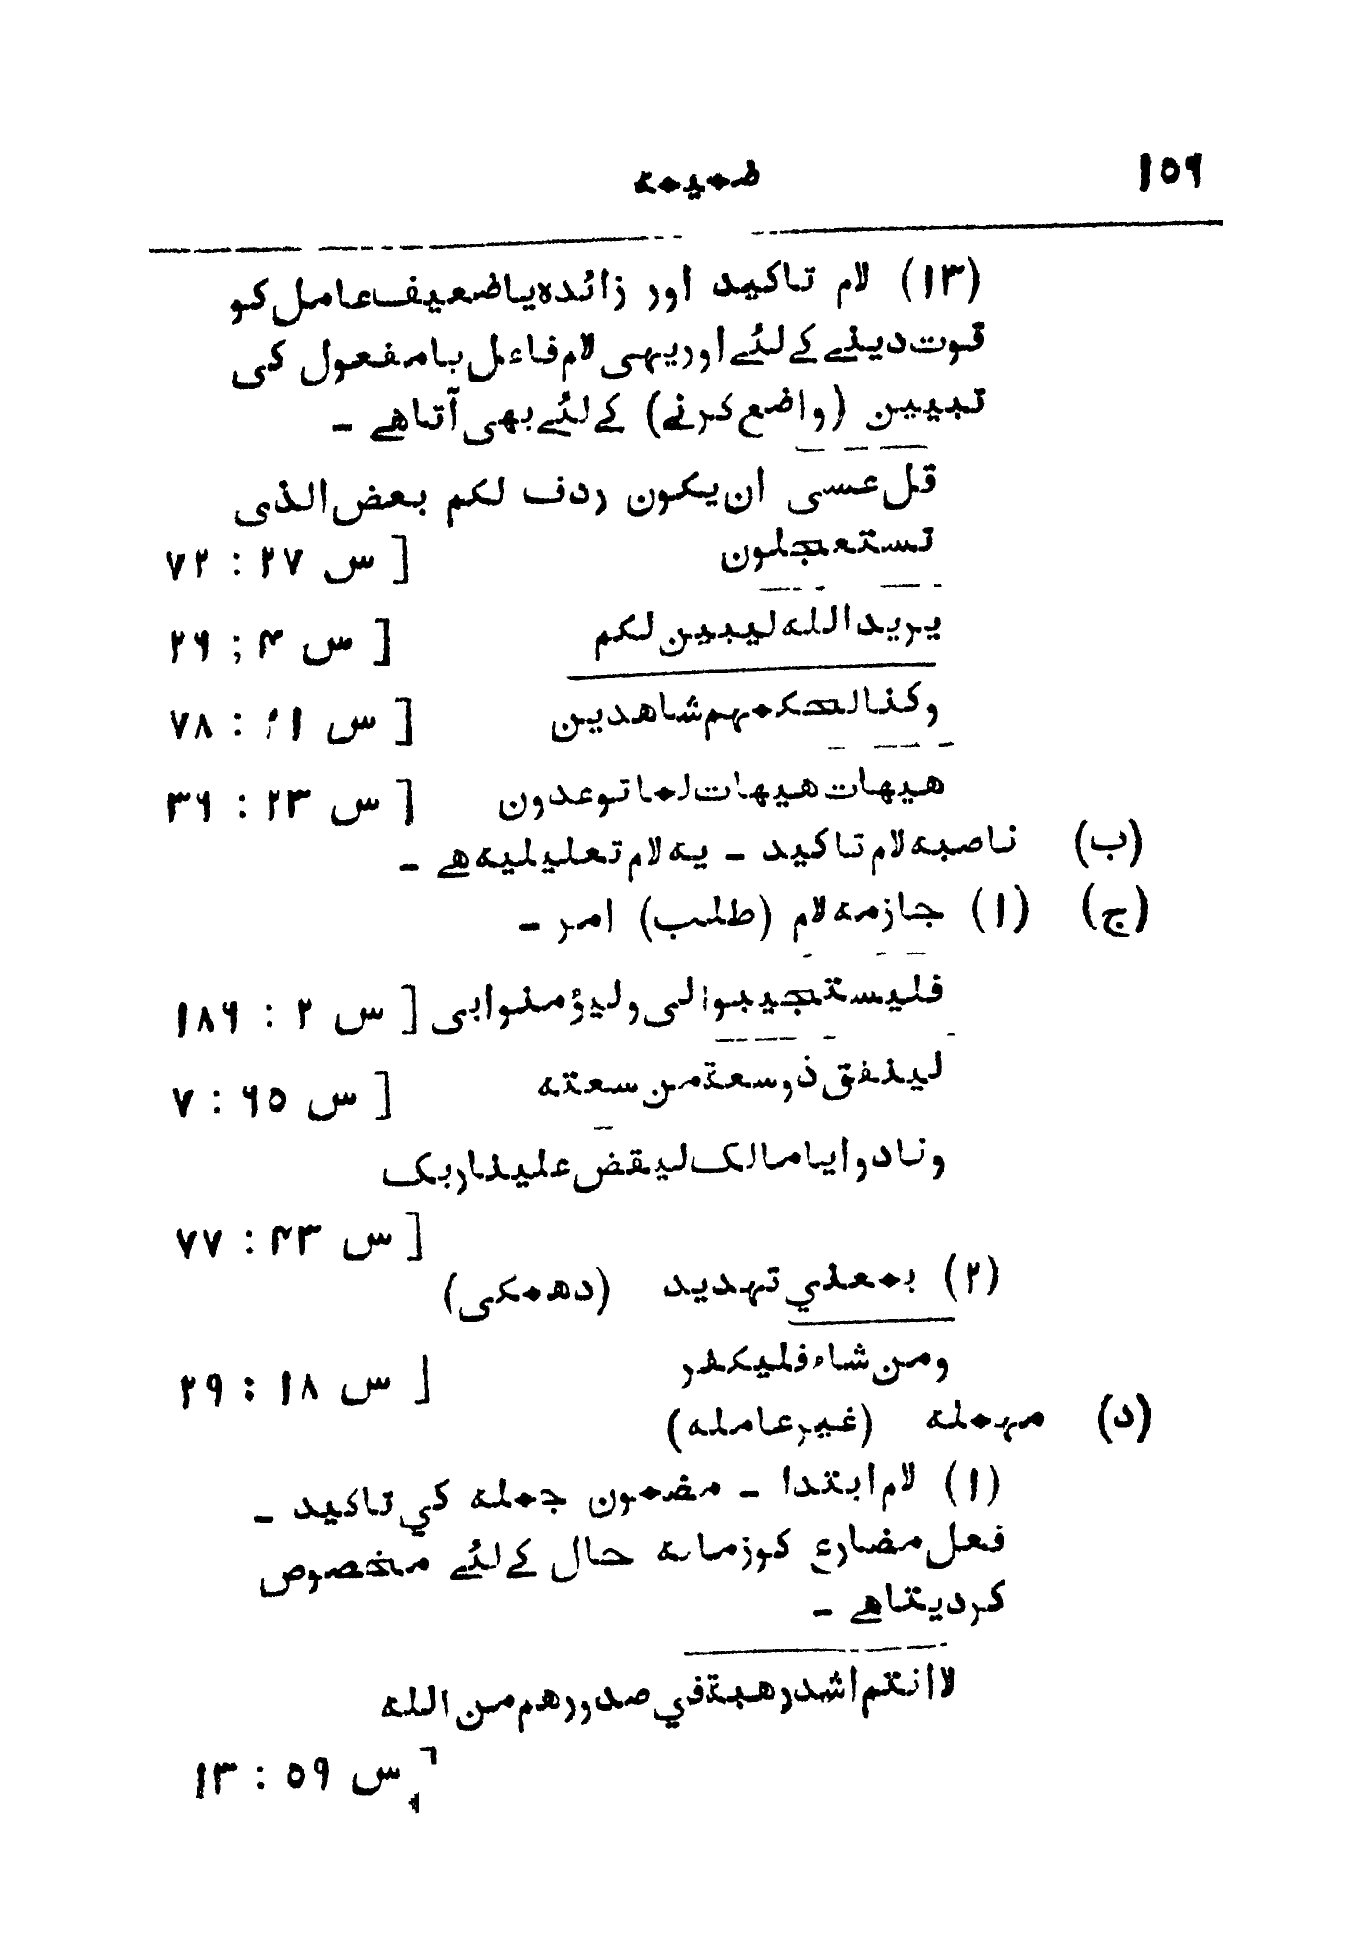 ١٥٦ ضمیمه
(١٣) لام تاکید اور زائدہ یا ضعیف عامل کو
قوت دینے کے لئے اور یہی لام فاعل با مفعول کی
تبیین (واضع کرنے) کے لئے بھی آتا ہے -
قل عسی ان یکون ردف لکم بعض الذی
تستعجلون [ س ٢٧ : ٧٢
یرید الله لیبین لکم [ س ۴ ; ٢٦
وکنا لحکمہم شاهدین [ س ٢١ : ٧٨
هیهات هیهات لما توعدون [ س ٢٣ : ٣٦
(ب) ناصبہ لام تاکید - یہ لام تعلیلیہ ہے -
(ج) (١) جازمہ لام (طلب) امر -
فلیستجیبوا لی ولیؤمنوا بی [ س ٢ : ١٨٦
لینفق ذوسعة من سعته [ س ٦٥ : ٧
ونادوا یا مالک لیقض علینا ربک
[ س ۴٣ : ٧٧
(٢) بمعني تہدید (دھمکی)
ومن شاء فلیکفر [ س ١٨ : ٢٩
(د) مہملہ (غیر عاملہ)
(١) لام ابتدا - مضمون جملہ کي تاکید -
فعل مضارع کو زمانہ حال کے لئے مخصوص
کر دیتا ہے -
لا انتم اشد رهبة في صدورهم من الله
[ س ٥٩ : ١٣